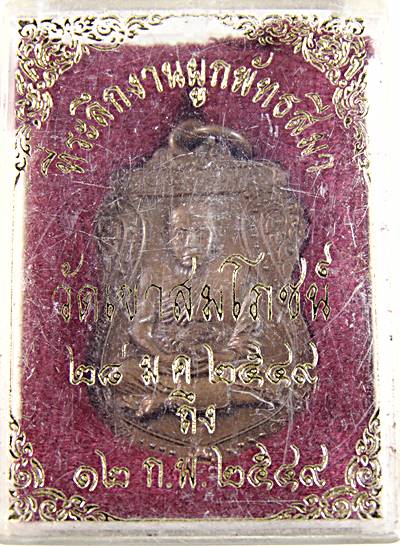 ที่ระลึกงานผูกพัทธสีมา
วัดเขาสมโภชน์
๒๘ ม ค ๒๕๔๙
ถึง
๑๒ ก.พ.๒๕๔๙